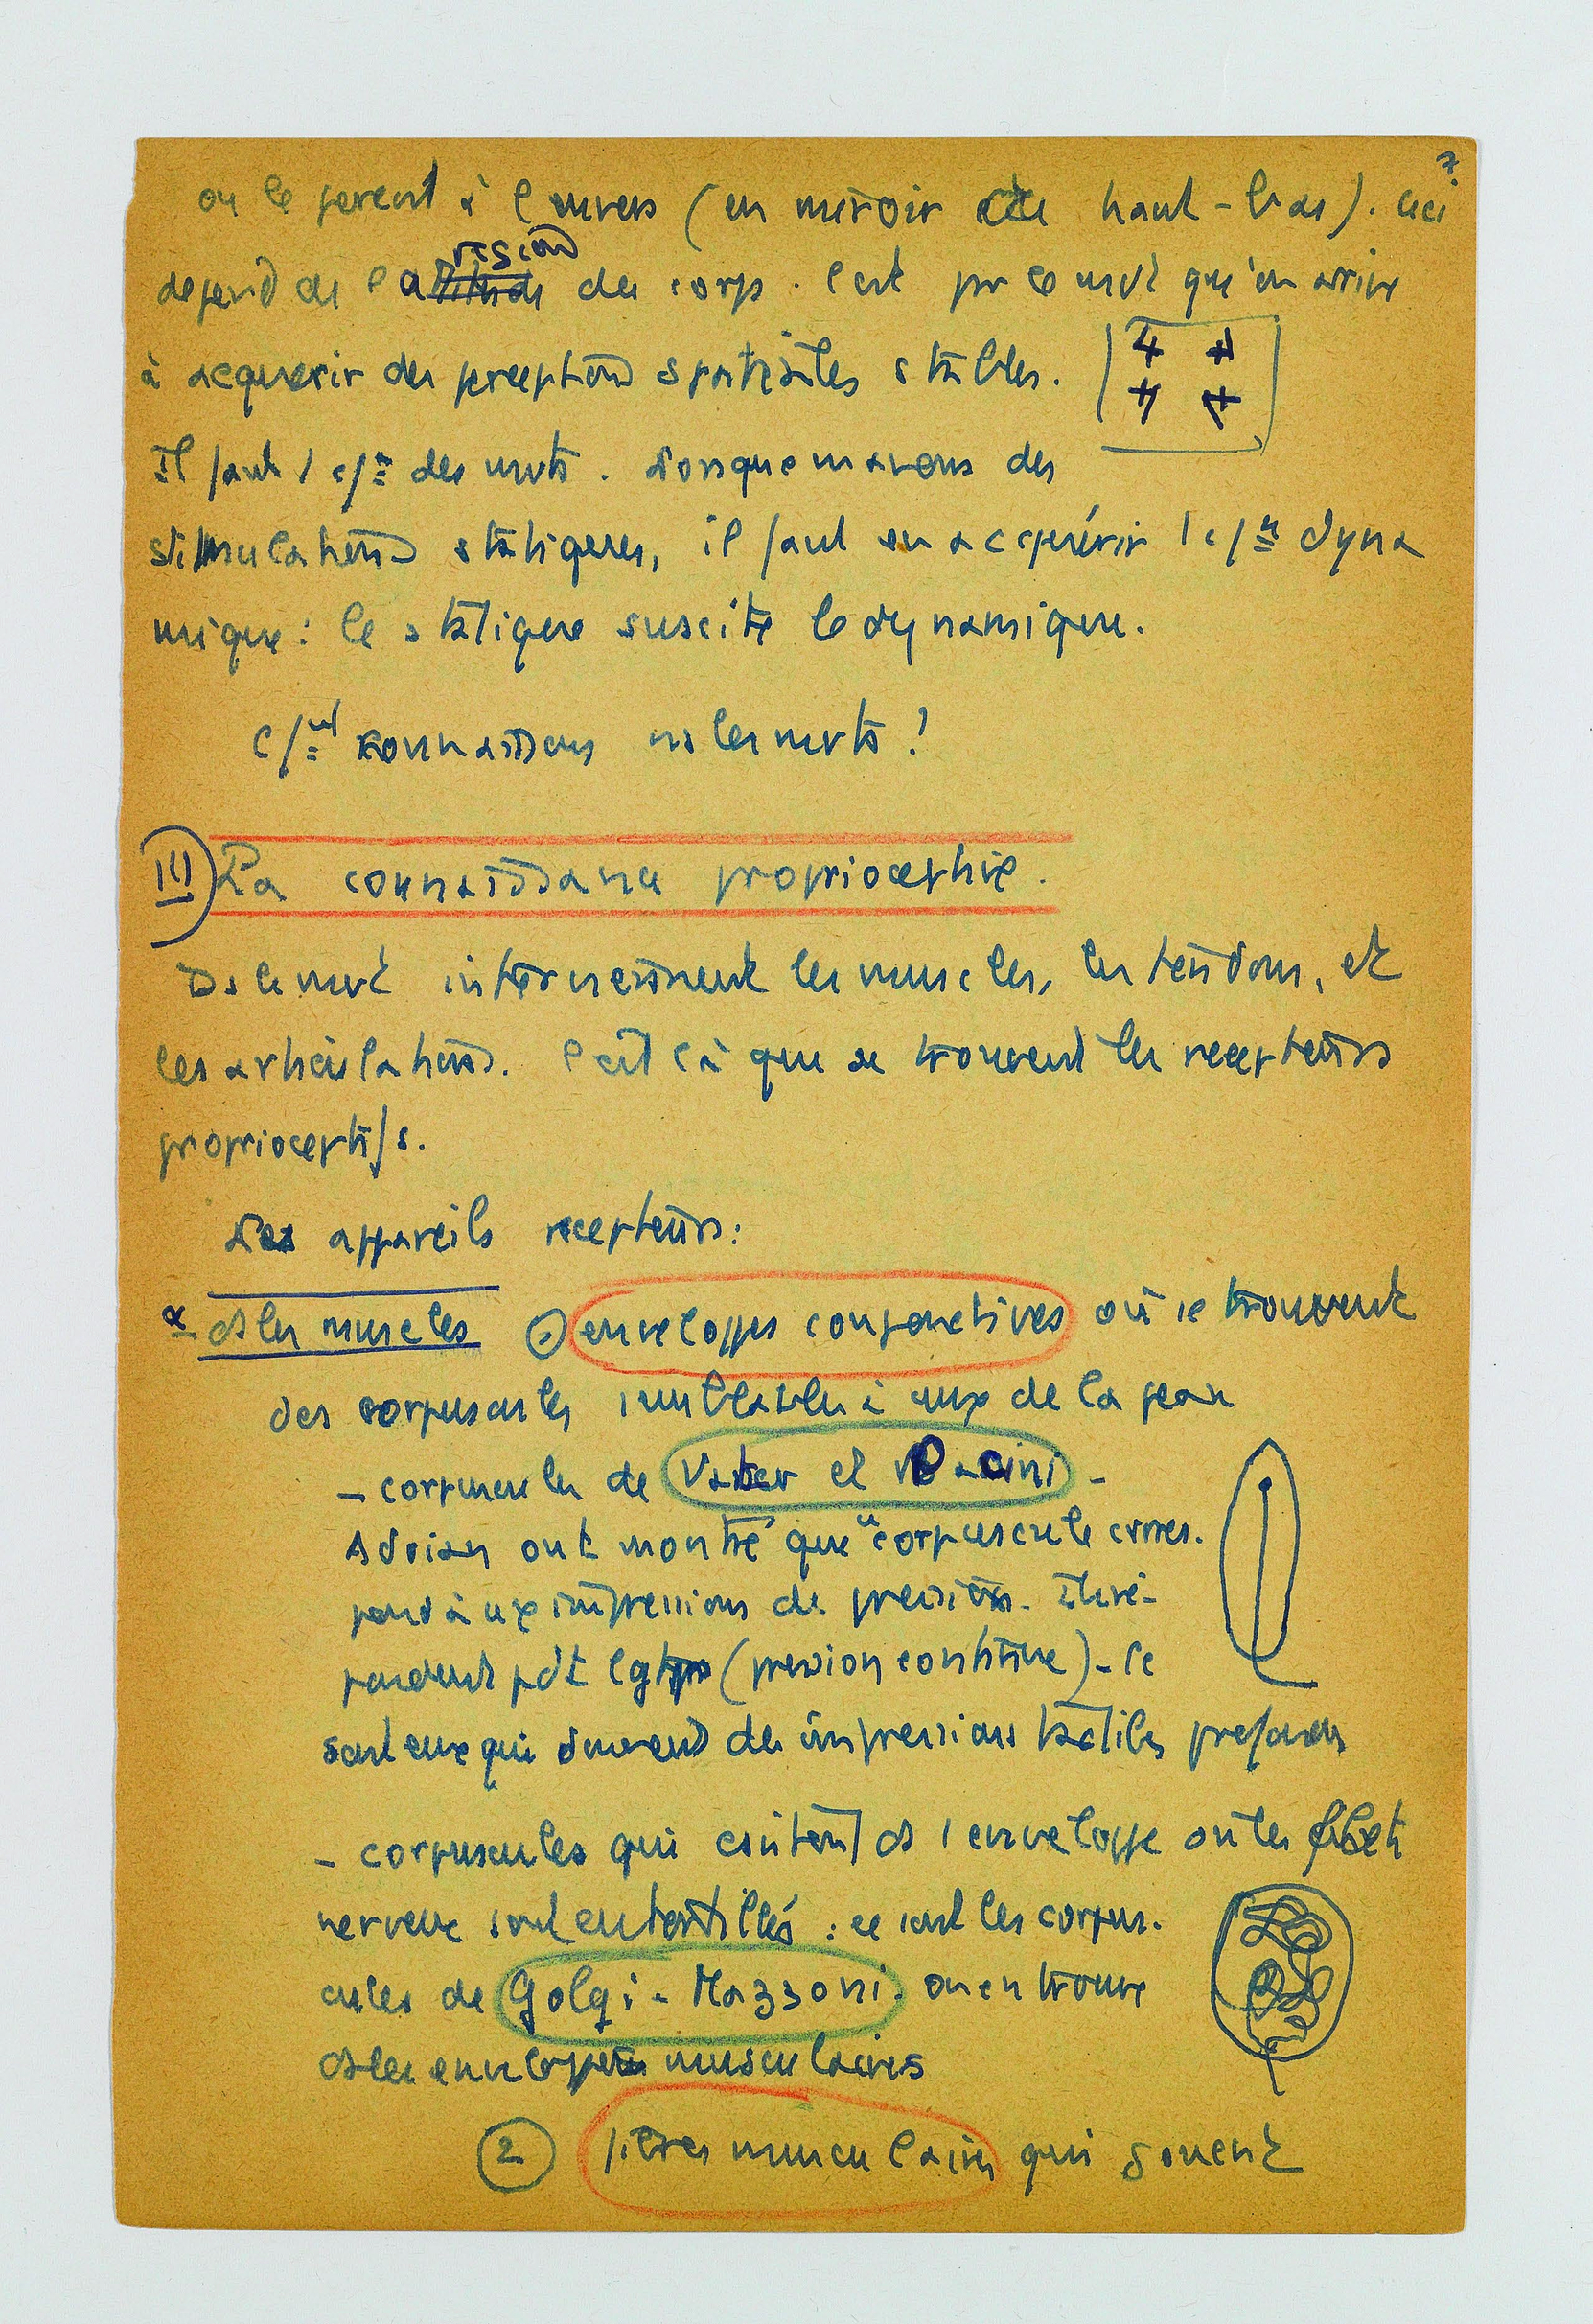 7
on le perçoit à l'envers (en miroir ou haut-bas). ceci
région
dépend de l'attitude du corps. C'est par le mvt qu'on arrive
à acquérir des perceptions spatiales stables.
4 4
4 4
Il faut 1 c/= des mvts. Lorsque ns avons des
stimulations statiques, il faut en acquérir 1 c/= dyna
mique : le statique suscite le dynamique.
c/= connaissons ns les mvts ?
III La connaissance proprioceptive.
Ds le mvt interviennent les muscles, les tendons, et
les articulations. C'est là que se trouvent les récepteurs
proprioceptifs.
Les appareils récepteurs :
α ds les muscles enveloppes conjonctives où se trouvent
des corpuscules semblables à ceux de la peau
- corpuscules de Vater et Pacini -
Adrian ont montré que ce corpuscule corres.
pond à impressions de pression. Ils ré-
pondent pdt lgtps (pression continue) - Ce
sont eux qui donnent des impressions tactiles profondes
- corpuscules qui contient ds 1 enveloppe où les filets
nerveux sont entortillés : ce sont les corpus.
cules de Golgi - Mazzoni. on en trouve
ds les enveloppes musculaires
2 fibres musculaires qui jouent